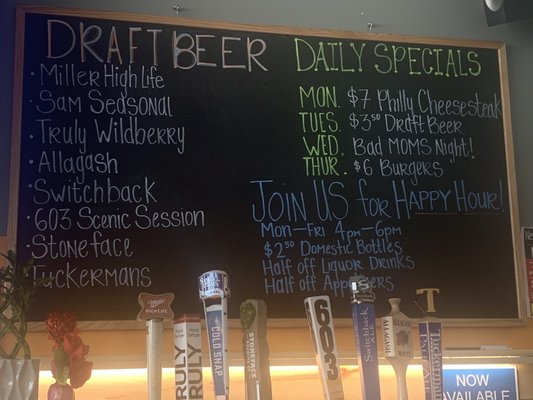 DRAFT BEER
· Miller High Life
· Sam Seasonal
· Truly Wildberry
· Allagash
· Switchback
· 603 Scenic Session
· Stoneface
· Tuckermans
DAILY SPECIALS
MON. $7 Philly Cheesesteak
TUES. $3.50 Draft Beer
WED. Bad MOMS Night!
THUR. $6 Burgers
JOIN US for HAPPY HOUR!
Mon-Fri 4pm-6pm
$2.50 Domestic Bottles
Half off Liquor Drinks
Half off Appetizers
HIGH LIFE
TRULY
TRULY
COLD SNAP
STONEFACE
603
Switchback Ale
ALLAGASH
WHITE
T
Tuckerman
PALE
NOW
AVAILABLE